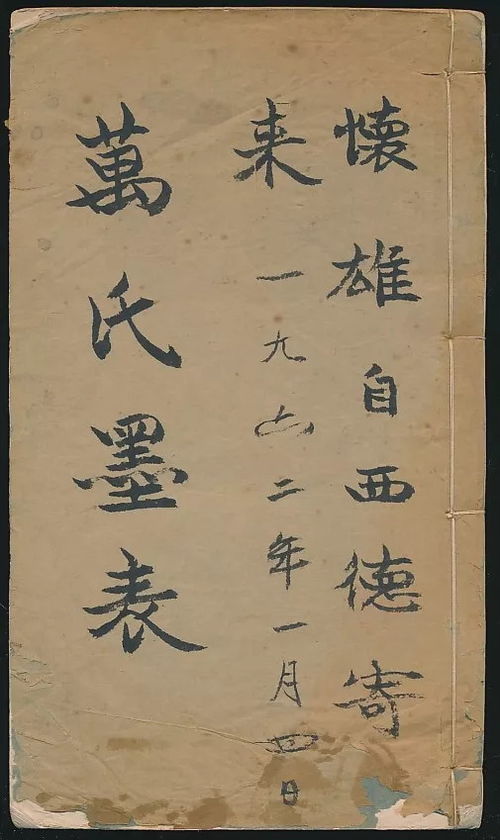 懷雄自西德寄
来一九六二年一月四日
萬氏墨表